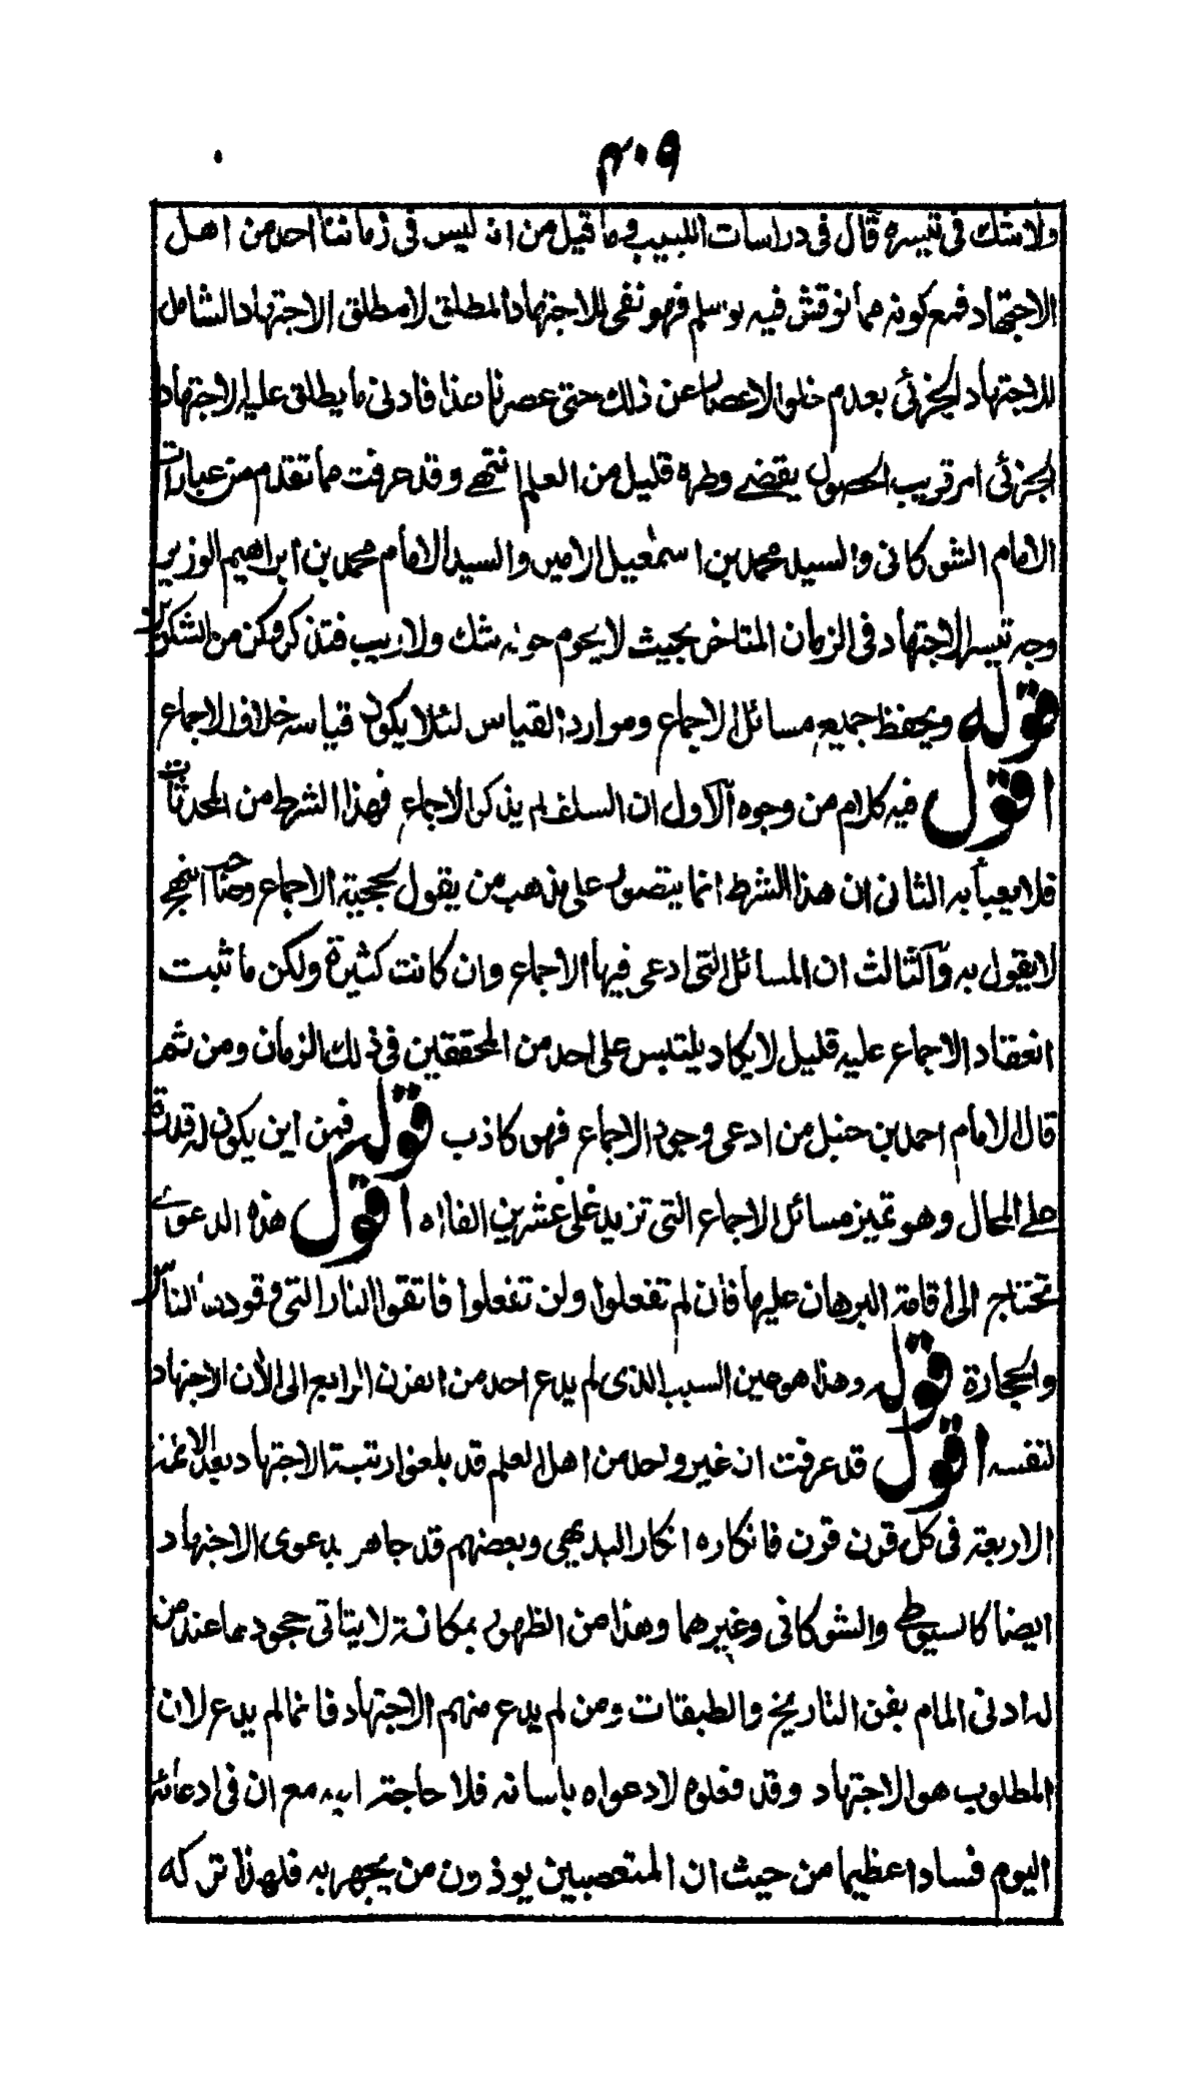 ٤٠٩
ولا شك فى تيسره قال فى دراسات اللبيب وما قيل من انه ليس فى زماننا احد من اهل
الاجتهاد فمع كونه مما نوقش فيه لو سلم فهو نفى للاجتهاد المطلق لا مطلق الاجتهاد الشامل
للاجتهاد الجزئى بعدم خلو الاعصار عن ذلك حتى عصرنا هذا فادنى ما يطلق عليه الاجتهاد
الجزئى امر قريب الحصول يقضے وطره قليل من العلم انتهے وقد عرفت مما تقدم من عبارات
الامام الشوكانى والسيد محمد بن اسمعيل الامير والسيد الامام محمد بن ابراهيم الوزير
وجه تيسر الاجتهاد فى الزمان المتاخر بحيث لا يحوم حوله شك ولا ريب فتذكر وكن من الشكرين
قوله ويحفظ جميع مسائل الاجماع وموارد القياس لئلا يكون قياسه خلاف الاجماع
اقول فيه كلام من وجوه الآول ان السلف لم يذكر الاجماع فهذا الشرط من المحدثات
فلا يعبأ به الثانى ان هذا الشرط انما يتصور على مذهب من يقول بحجية الاجماع وصاحب النهج
لا يقول به وآلثالث ان المسائل التى ادعى فيها الاجماع وان كانت كثيرة ولكن ما ثبت
انعقاد الاجماع عليه قليل لا يكاد يلتبس على احد من المحققين فى ذلك الزمان ومن ثم
قال الامام احمد بن حنبل من ادعى وجود الاجماع فهو كاذب قوله فمن اين يكون له قدرة
على المحال وهو تميز مسائل الاجماع التى تزيد على عشرين الفا اه اقول هذه الدعوے
تحتاج الى اقامة البرهان عليها فان لم تفعلوا ولن تفعلوا فاتقوا النار التى وقودها الناس
والحجارة قوله وهذا هو عين السبب الذى لم يدع احد من القرن الرابع الى الأن الاجتهاد
لنفسه اقول قد عرفت ان غير واحد من اهل العلم قد بلغوا رتبة الاجتهاد بعد الائمة
الاربعة فى كل قرن قرن فانكاره انكار البديهى وبعضهم قد جاهر بدعوى الاجتهاد
ايضا كالسيوطے والشوكانى وغيرهما وهذا من الظهور بمكانة لا يتاتى جحودها عند من
له ادنى المام بفن التاريخ والطبقات ومن لم يدع منهم الاجتهاد فانما لم يدع لان
المطلوب هو الاجتهاد وقد فعلوه لا دعواه باسانه فلا حاجة اليه مع ان فى ادعائه
اليوم فسادا عظيما من حيث ان المتعصبين يوذون من يجهر به فلهذا تركه